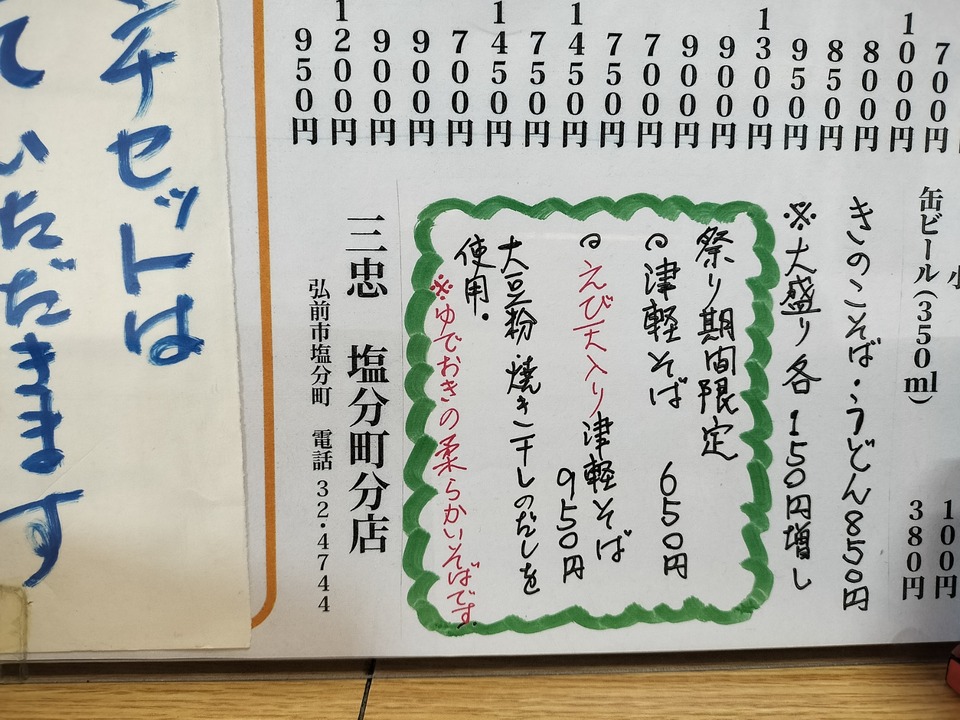 700円
1000円
800円
850円
950円
1300円
900円
900円
700円
750円
1450円
750円
1450円
700円
900円
900円
1200円
950円
小
100円
缶ビール(350ml) 380円
きのこそば・うどん850円
※大盛り各150円増し
祭り期間限定
◎津軽そば 650円
◎えび天入り津軽そば
950円
大豆粉 焼き干しのだしを
使用.
※ゆでおきの柔らかいそばです.
三忠 塩分町分店
弘前市塩分町 電話 32・4744
ンチセットは
ていただきます